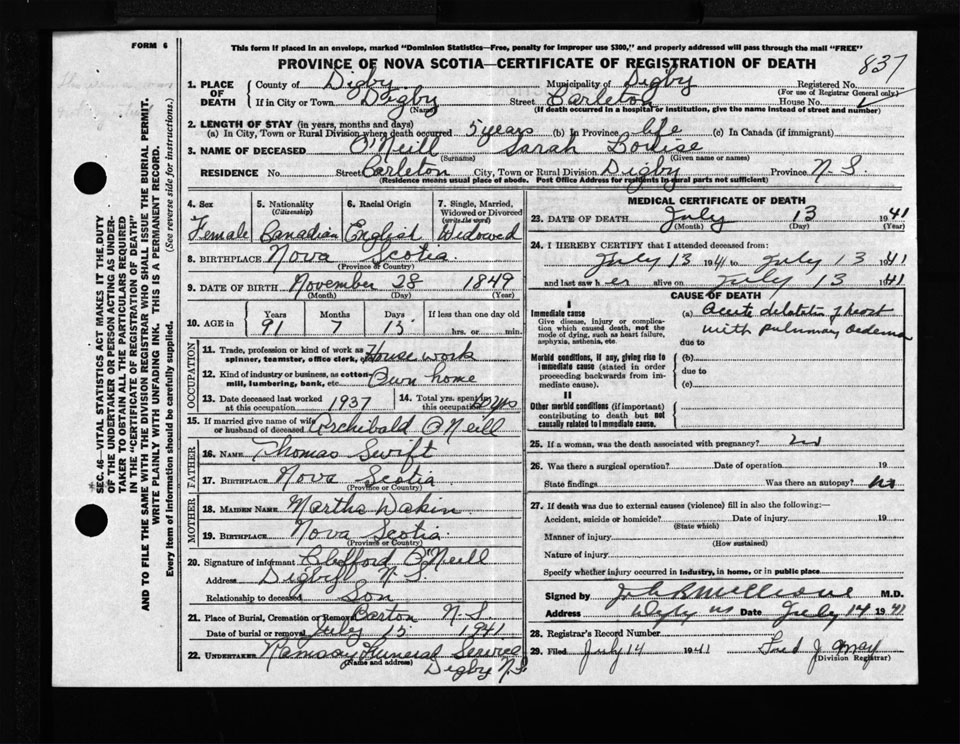 FORM 6
This form if placed in an envelope, marked "Dominion Statistics—Free, penalty for improper use $300," and properly addressed will pass through the mail "FREE"
PROVINCE OF NOVA SCOTIA—CERTIFICATE OF REGISTRATION OF DEATH
837
1. PLACE OF DEATH
County of Digby Municipality of Digby Registered No.
(For use of Registrar General only)
If in City or Town Digby Street Carleton House No.
(If death occurred in a hospital or institution, give the name instead of street and number)
2. LENGTH OF STAY (in years, months and days)
(a) In City, Town or Rural Division where death occurred 5 years (b) In Province life (c) In Canada (if immigrant)
3. NAME OF DECEASED O'Neill Sarah Louise
(Surname) (Given name or names)
RESIDENCE No. Street Carleton City, Town or Rural Division Digby Province N.S.
(Residence means usual place of abode. Post Office Address for residents in rural parts not sufficient)
4. Sex 5. Nationality (Citizenship) 6. Racial Origin 7. Single, Married, Widowed or Divorced (write the word)
Female Canadian English Widowed
8. BIRTHPLACE Nova Scotia
(Province or Country)
9. DATE OF BIRTH November 28 1849
(Month) (Day) (Year)
10. AGE in Years Months Days If less than one day old
91 7 15 hrs. or min.
OCCUPATION
11. Trade, profession or kind of work as spinner, teamster, office clerk, House work
12. Kind of industry or business, as cotton-mill, lumbering, bank, etc. Own home
13. Date deceased last worked at this occupation 1937 14. Total yrs. spent in this occupation yrs
15. If married give name of wife or husband of deceased Archibald O'Neill
FATHER
16. NAME Thomas Swift
17. BIRTHPLACE Nova Scotia
(Province or Country)
MOTHER
18. MAIDEN NAME Martha Dakin
19. BIRTHPLACE Nova Scotia
(Province or Country)
20. Signature of informant Clifford O'Neill
Address Digby N.S.
Relationship to deceased Son
21. Place of Burial, Cremation or Removal Barton N.S.
Date of burial or removal July 15 1941
22. UNDERTAKER Ramsay Funeral Service
(Name and address) Digby N.S.
MEDICAL CERTIFICATE OF DEATH
23. DATE OF DEATH July 13 1941
(Month) (Day) (Year)
24. I HEREBY CERTIFY that I attended deceased from:
July 13 1941 to July 13 1941
and last saw her alive on July 13 1941
CAUSE OF DEATH
I
Immediate cause
Give disease, injury or complication which caused death, not the mode of dying, such as heart failure, asphyxia, asthenia, etc.
(a) Acute dilatation of heart
with pulmonary oedema
due to
Morbid conditions, if any, giving rise to immediate cause (stated in order proceeding backwards from immediate cause).
(b)
due to
(c)
II
Other morbid conditions (if important) contributing to death but not causally related to immediate cause.
25. If a woman, was the death associated with pregnancy? no
26. Was there a surgical operation? Date of operation 19
State findings Was there an autopsy? no
27. If death was due to external causes (violence) fill in also the following:—
Accident, suicide or homicide? Date of injury 19
(State which)
Manner of injury
(How sustained)
Nature of injury
Specify whether injury occurred in industry, in home, or in public place
Signed by M.D.
Address Digby NS Date July 14 1941
28. Registrar's Record Number
29. Filed July 14 1941 Fred J May
(Division Registrar)
SEC. 46—VITAL STATISTICS ACT MAKES IT THE DUTY
OF THE UNDERTAKER OR PERSON ACTING AS UNDER-
TAKER TO OBTAIN ALL THE PARTICULARS REQUIRED
IN THE "CERTIFICATE OF REGISTRATION OF DEATH"
AND TO FILE THE SAME WITH THE DIVISION REGISTRAR WHO SHALL ISSUE THE BURIAL PERMIT.
WRITE PLAINLY WITH UNFADING INK. THIS IS A PERMANENT RECORD.
Every item of information should be carefully supplied. (See reverse side for instructions.)